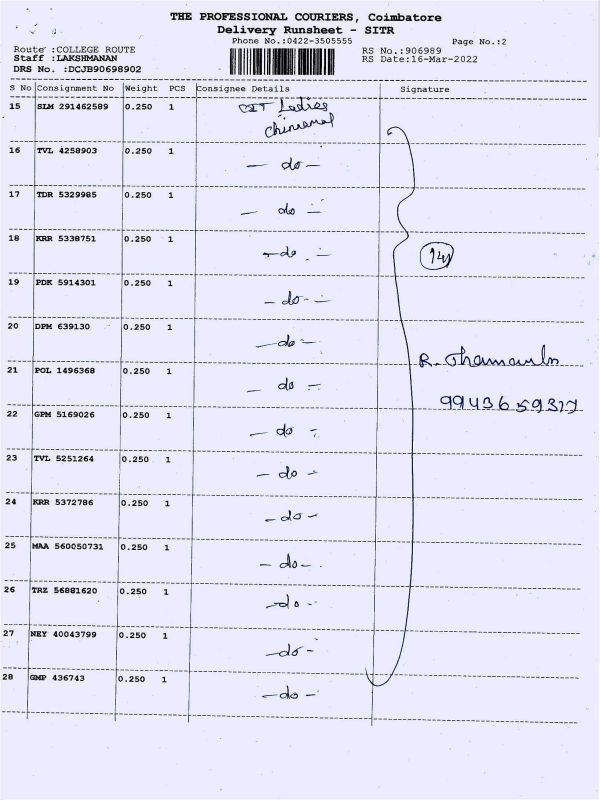 THE PROFESSIONAL COURIERS, Coimbatore
Delivery Runsheet - SITR
Phone No.:0422-3505555 Page No.:2
Route :COLLEGE ROUTE RS No.:906989
Staff :LAKSHMANAN RS Date:16-Mar-2022
DRS No. :DCJB90698902
S No Consignment No Weight PCS Consignee Details Signature
15 SLM 291462589 0.250 1 CIT Ladies
16 TVL 4258903 0.250 1 - do -
17 TDR 5329985 0.250 1 - do -
18 KRR 5338751 0.250 1 - do -
14
19 PDK 5914301 0.250 1 - do -
20 DPM 639130 0.250 1 - do -
R.
21 POL 1496368 0.250 1 - do -
99436 59317
22 GPM 5169026 0.250 1 - do -
23 TVL 5251264 0.250 1 - do -
24 KRR 5372786 0.250 1 - do -
25 MAA 560050731 0.250 1 - do -
26 TRZ 56881620 0.250 1 - do -
27 NEY 40043799 0.250 1 - do -
28 GMP 436743 0.250 1 - do -